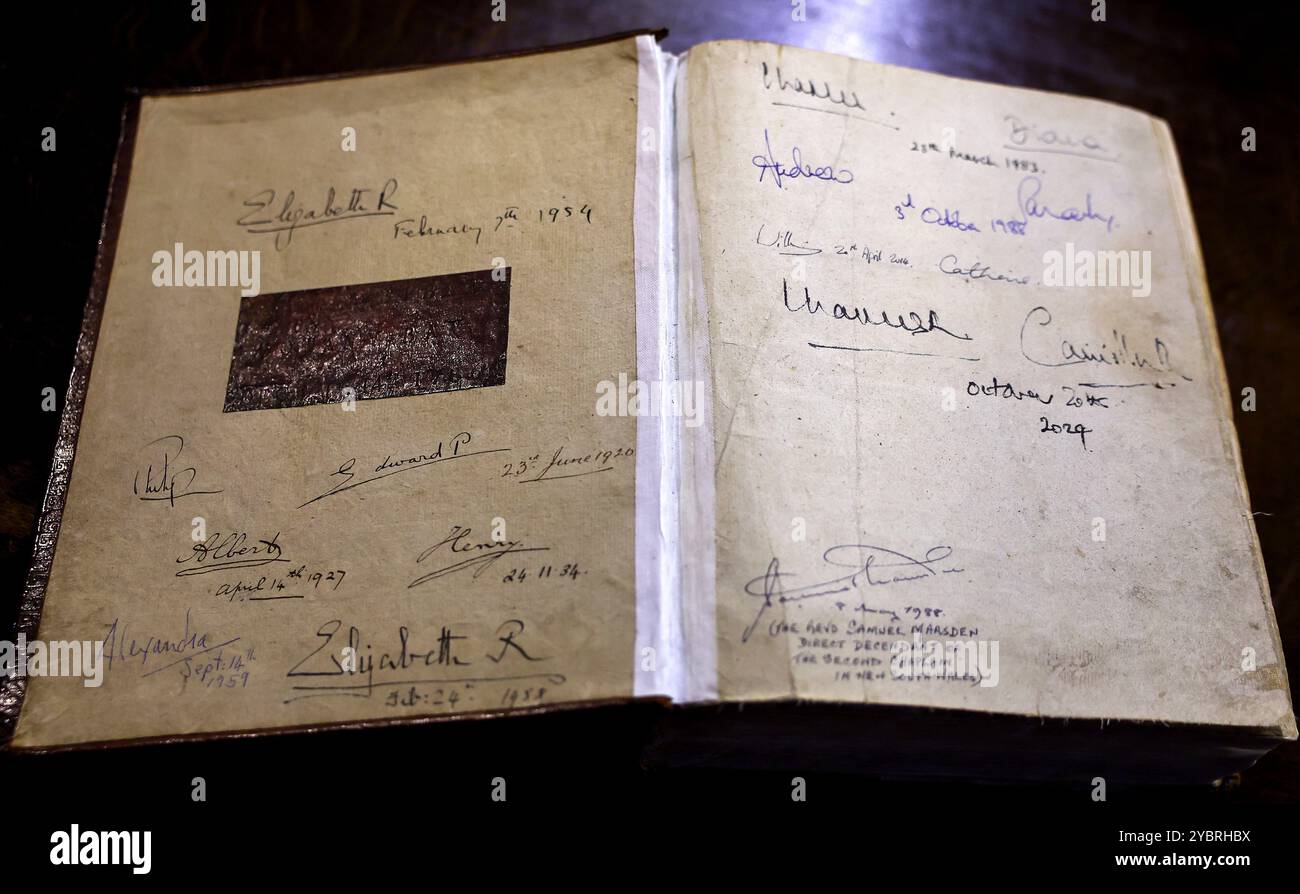 Elizabeth R
February 7th 1954
Philip
Edward P
23rd June 1920
Albert
April 14th 1927
Henry.
24.11.34.
Alexandra
Sept: 14th
1959
Elizabeth R
Feb: 24th 1958
Charles
Diana
28th March 1983.
Andrew
Sarah
3rd October 1988
William 20th April 2014. Catherine
Charles R
Camilla R
October 20th
2024
8 May 1988.
(THE REVD SAMUEL MARSDEN
DIRECT DECENDANT OF
THE SECOND CHAPLAIN
IN NEW SOUTH WALES)
alamy
Image ID: 2YBRHBX
www.alamy.com